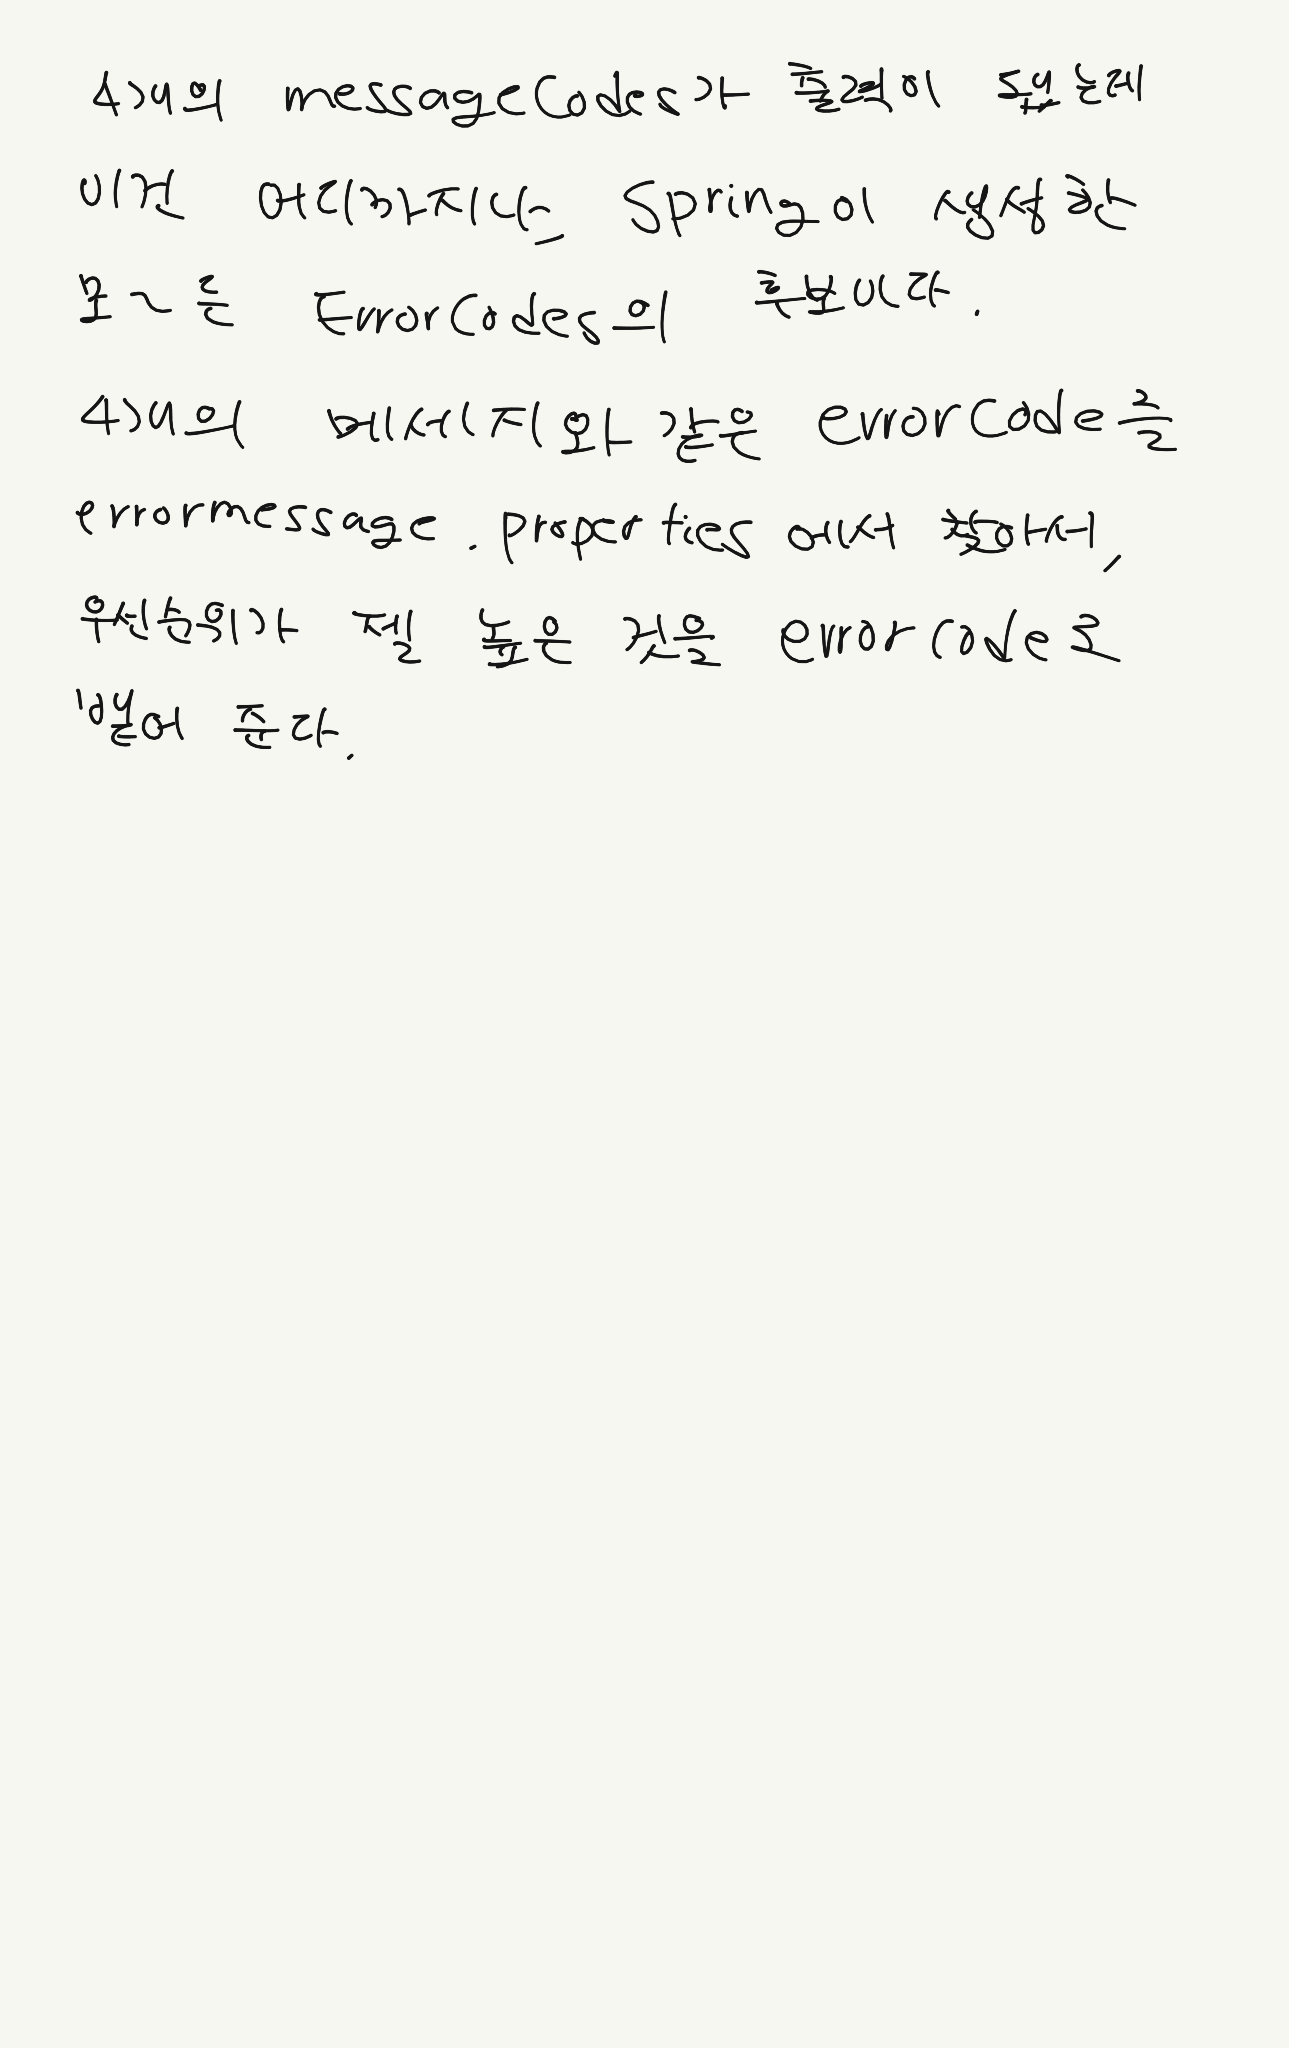 4개의 messageCodes가 출력이 됐는데
이건 어디까지나 Spring이 생성한
모~든 ErrorCodes의 후보이다.
4개의 메세지와 같은 errorCode를
errormessage.properties에서 찾아서,
우선순위가 젤 높은 것을 errorCode로
뱉어 준다.